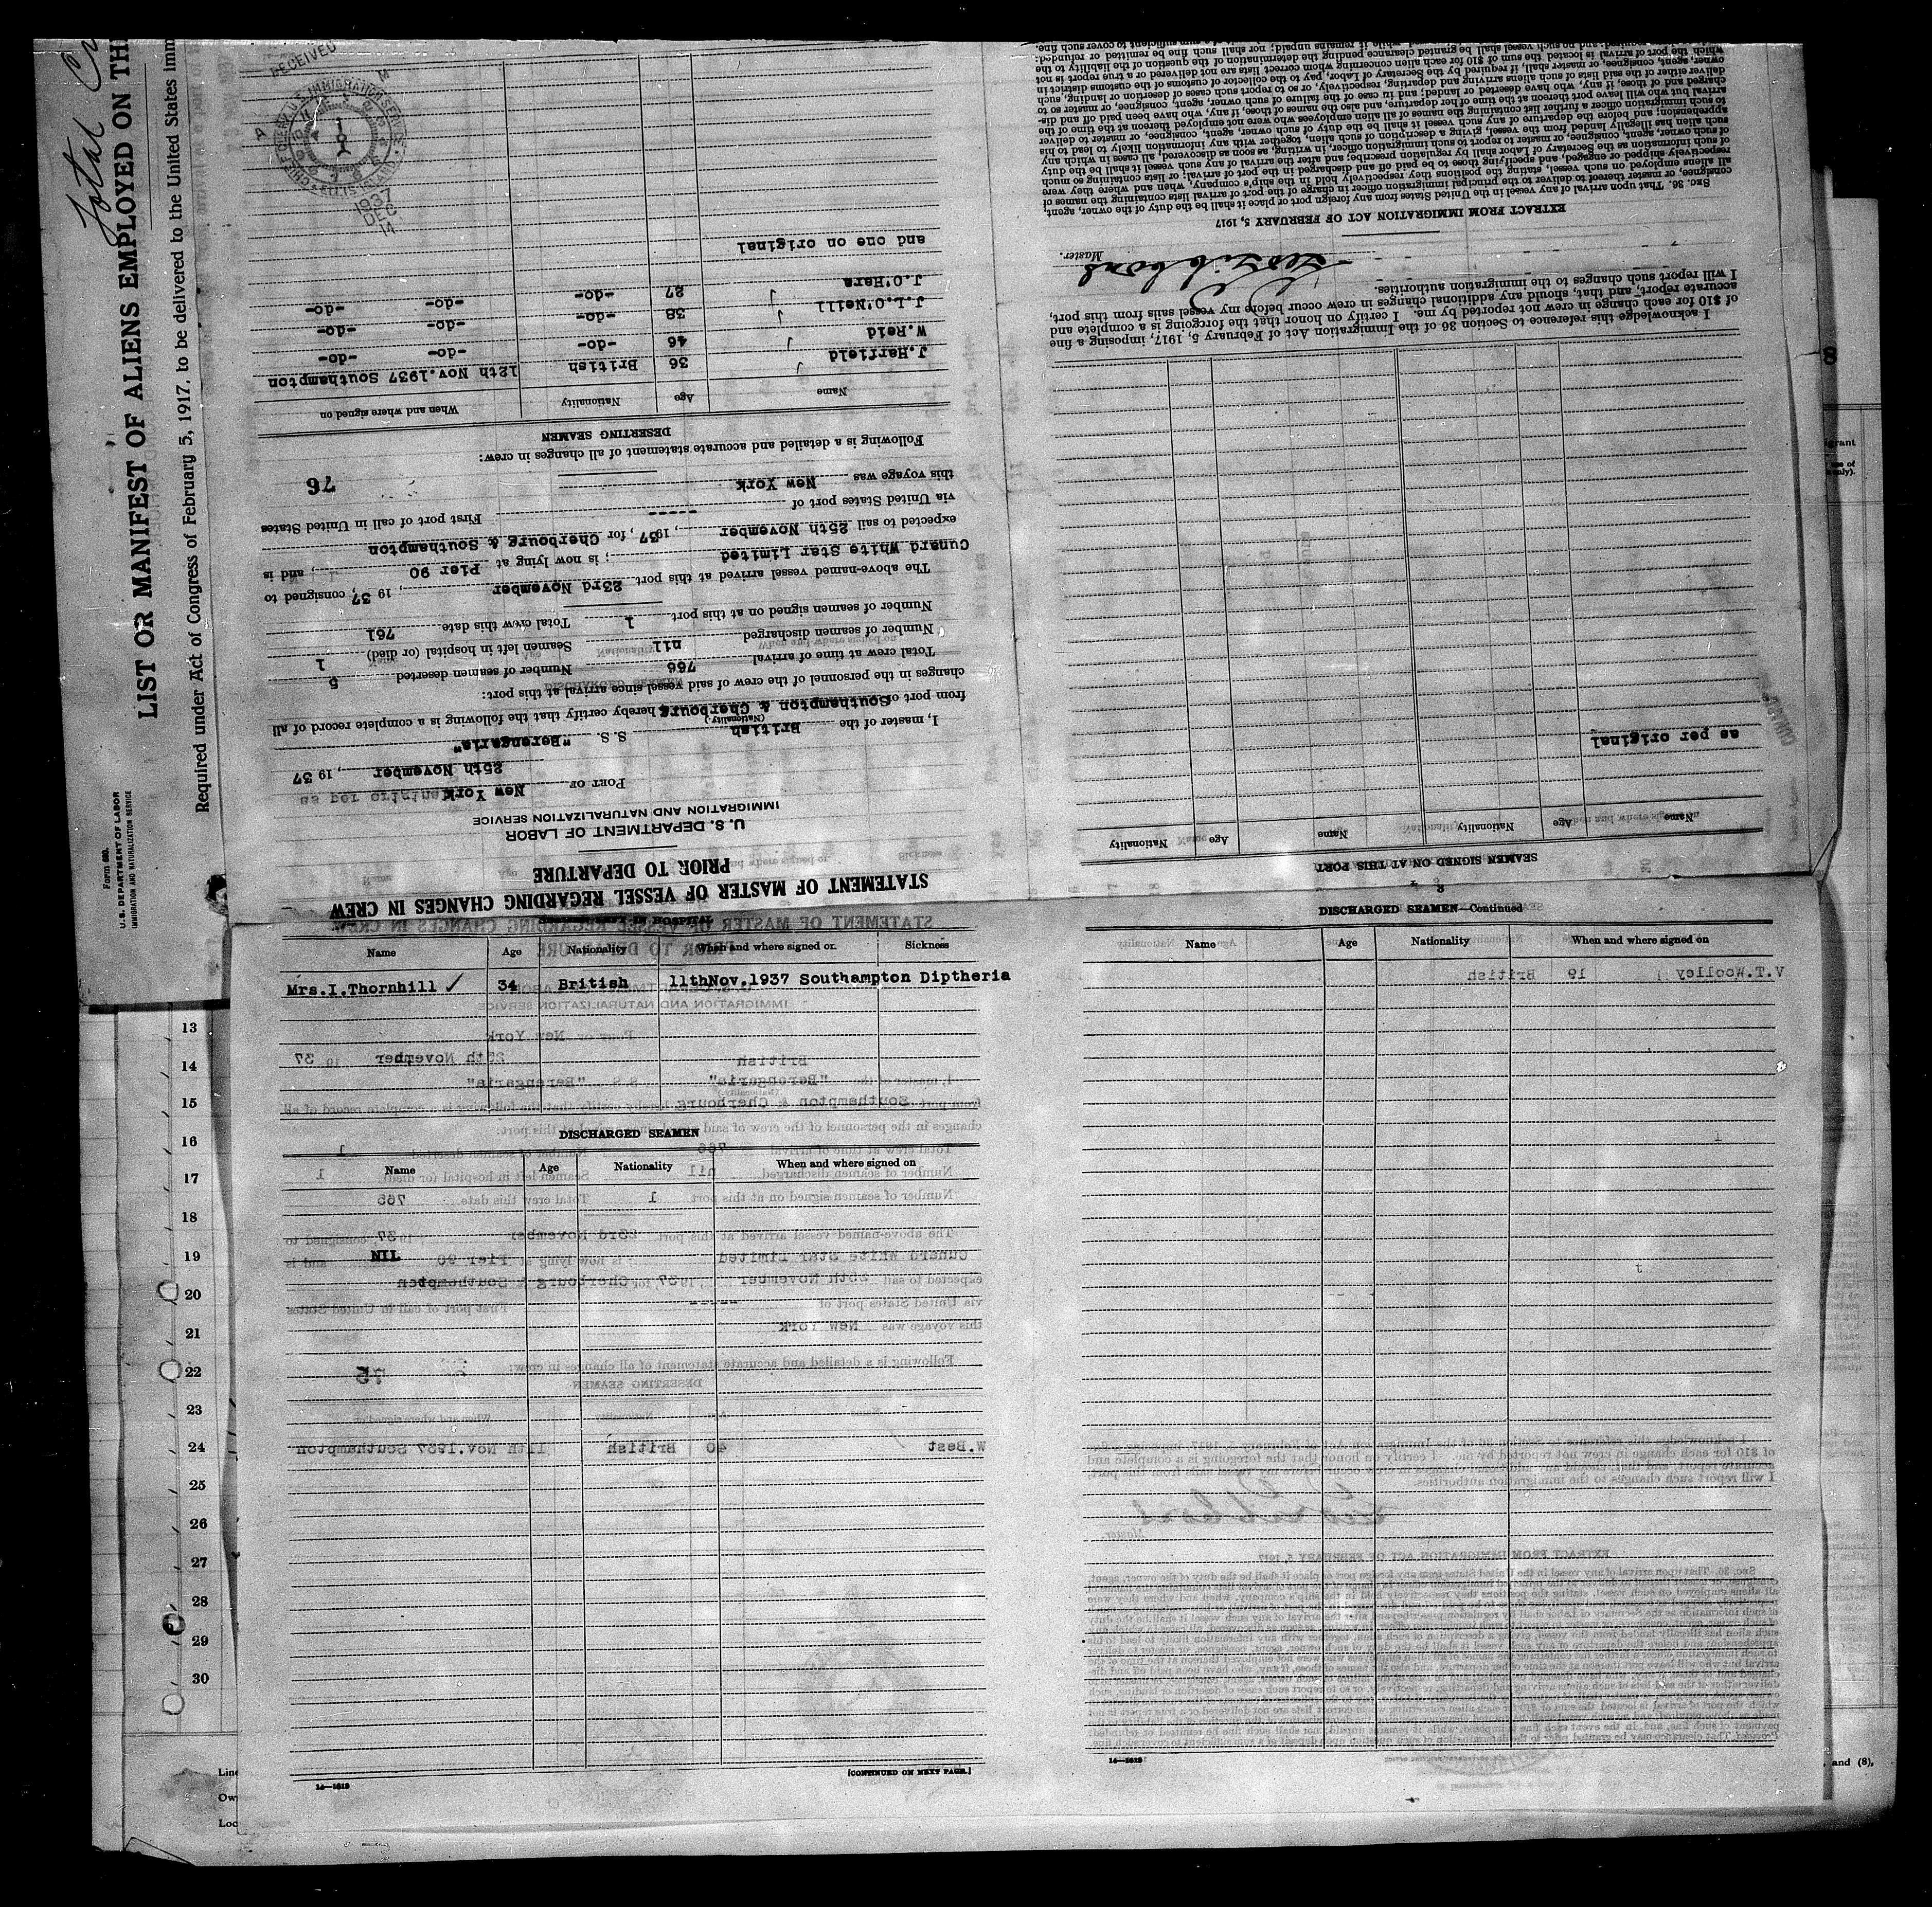 Total
Form 689.
U. S. DEPARTMENT OF LABOR
IMMIGRATION AND NATURALIZATION SERVICE
LIST OR MANIFEST OF ALIENS EMPLOYED ON TH
Required under Act of Congress of February 5, 1917, to be delivered to the United States imm
STATEMENT OF MASTER OF VESSEL REGARDING CHANGES IN CREW
PRIOR TO DEPARTURE
U. S. DEPARTMENT OF LABOR
IMMIGRATION AND NATURALIZATION SERVICE
PORT OF New York
25th November, 1937
I, master of the British S. S. "Berengaria"
(Nationality)
from port of Southampton & Cherbourg hereby certify that the following is a complete record of all
changes in the personnel of the crew of said vessel since arrival at this port:
Total crew at time of arrival 766 Number of seamen deserted 5
Number of seamen discharged nil Seamen left in hospital (or died) 1
Number of seamen signed on at this port 1 Total crew this date 761
The above-named vessel arrived at this port 23rd November, 1937, consigned to
Cunard White Star Limited; is now lying at Pier 90, and is
expected to sail 25th November, 1937, for Cherbourg & Southampton
via United States port of ----- First port of call in United States
this voyage was New York
76
Following is a detailed and accurate statement of all changes in crew:
DESERTING SEAMEN
Name Age Nationality When and where signed on
J.Harfield 36 British 12th Nov.1937 Southampton
W.Reid 46 -do- -do- -do-
J.L.O'Neill 38 -do- -do- -do-
J.O'Hara 27 -do- -do- -do-
and one on original
RECEIVED
1937 DEC 14
SEAMEN SIGNED ON AT THIS PORT
Name Age Nationality Name Age Nationality
as per original
I acknowledge this reference to Section 36 of the Immigration Act of February 5, 1917, imposing a fine
of $10 for each change in crew not reported by me. I certify on honor that the foregoing is a complete and
accurate report, and that, should any additional changes in crew occur before my vessel sails from this port,
I will report such changes to the immigration authorities.
Master.
EXTRACT FROM IMMIGRATION ACT OF FEBRUARY 5, 1917
SEC. 36. That upon arrival of any vessel in the United States from any foreign port or place it shall be the duty of the owner, agent,
consignee, or master thereof to deliver to the principal immigration officer in charge of the port of arrival lists containing the names of
all aliens employed on such vessel, stating the positions they respectively hold in the ship's company, when and where they were
respectively shipped or engaged, and specifying those to be paid off and discharged in the port of arrival; or lists containing so much
of such information as the Secretary of Labor shall by regulation prescribe; and after the arrival of any such vessel it shall be the duty
of such owner, agent, consignee, or master to report to such immigration officer, in writing, as soon as discovered, all cases in which any
such alien has illegally landed from the vessel, giving a description of such alien, together with any information likely to lead to his
apprehension; and before the departure of any such vessel it shall be the duty of such owner, agent, consignee, or master to deliver
to such immigration officer a further list containing the names of all alien employees who were not employed thereon at the time of the
arrival but who will leave port thereon at the time of her departure, and also the names of those, if any, who have been paid off and dis-
charged and of those, if any, who have deserted or landed; and in case of the failure of such owner, agent, consignee, or master so to
deliver either of the said lists of such aliens arriving and departing, respectively, or so to report such cases of desertion or landing, such
owner, agent, consignee, or master shall, if required by the Secretary of Labor, pay to the collector of customs of the customs district in
which the port of arrival is located the sum of $10 for each alien concerning whom correct lists are not delivered or a true report is not
Name Age Nationality When and where signed on Sickness
Mrs.I.Thornhill ✓ 34 British 11thNov.1937 Southampton Diptheria
DISCHARGED SEAMEN
Name Age Nationality When and where signed on
NIL
14—1613
[CONTINUED ON NEXT PAGE.]
DISCHARGED SEAMEN—Continued
Name Age Nationality When and where signed on
V.T.Woolley 19 British
W.Best 40 British 11th Nov.1937 Southampton
75
14—1613
13
14
15
16
17
18
19
20
21
22
23
24
25
26
27
28
29
30
Line
Ow
Loc
8
and (8),